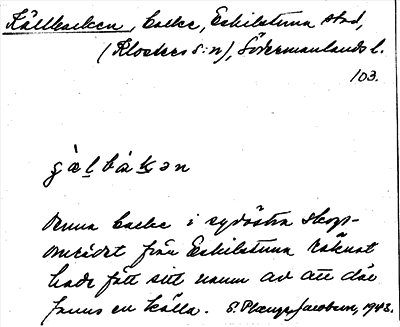 Källbacken, backe, Eskilstuna stad,
(Klosters s:n), Södermanlands l.
103.
Denna backe i sydöstra skogs-
området från Eskilstuna räknat
hade fått sitt namn av att där
fanns en källa. S. Jacobson, 1943.